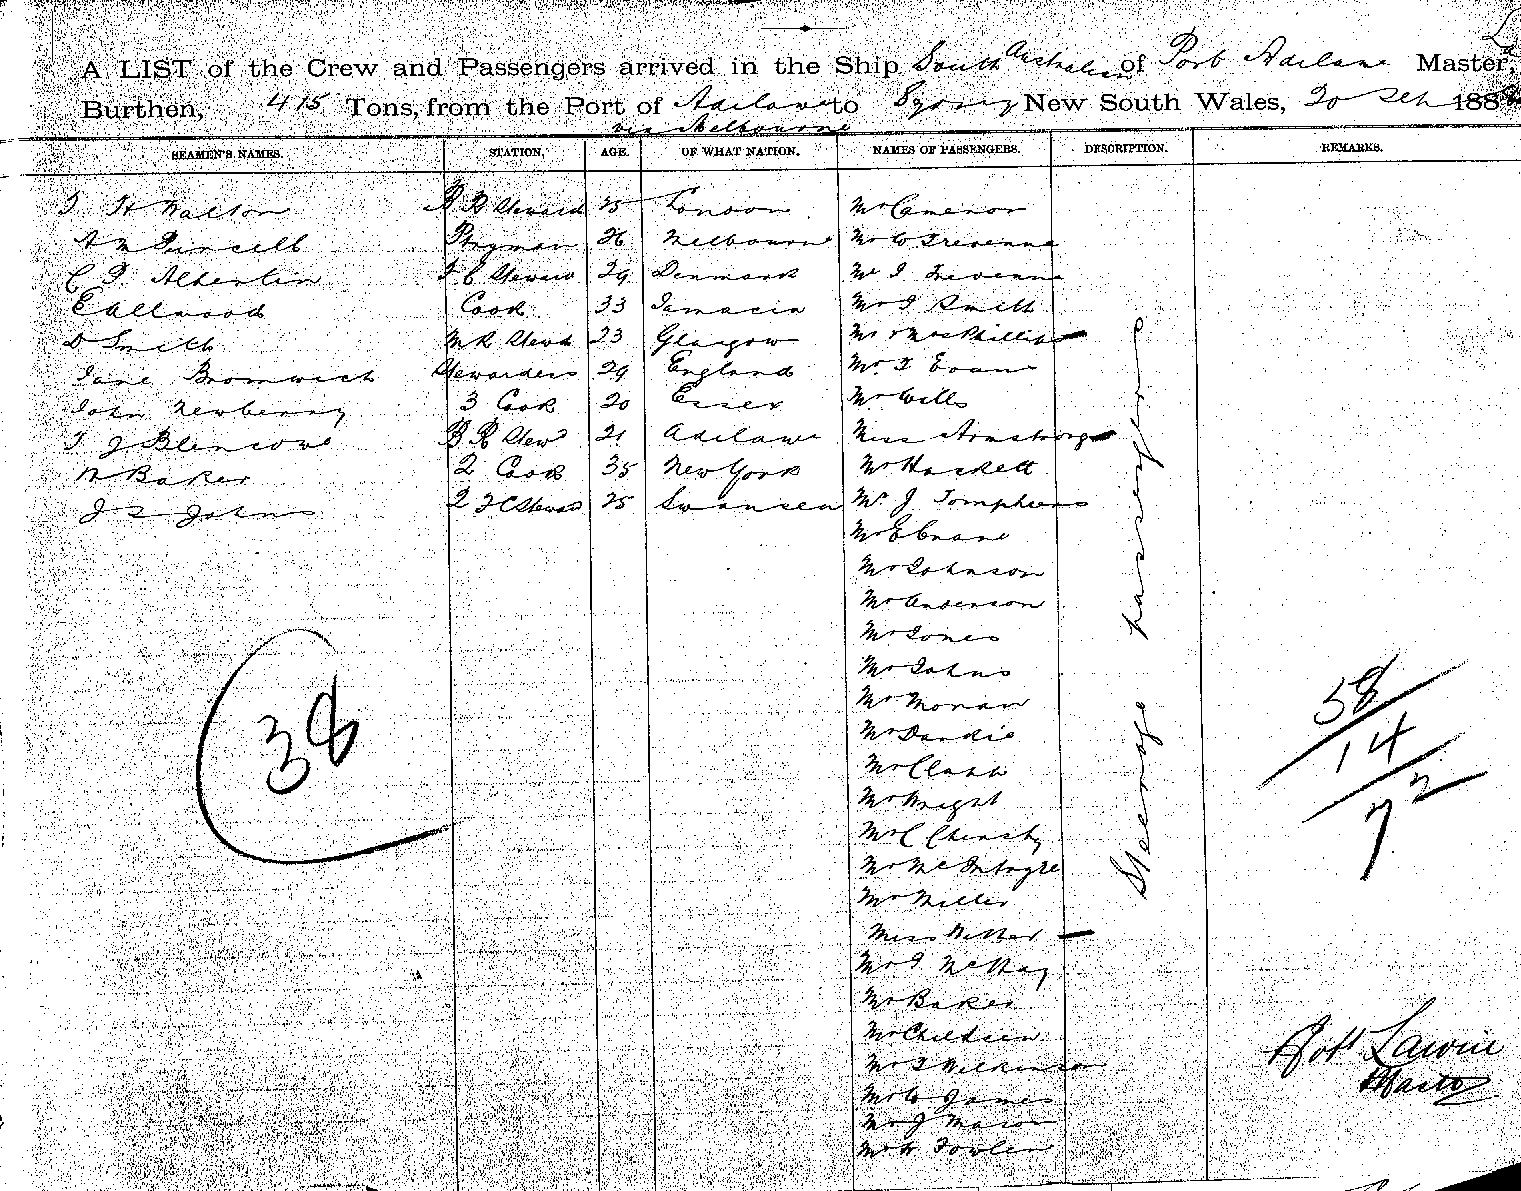 A LIST of the Crew and Passengers arrived in the Ship South Australian of Port Adelaide Master,
Burthen, 415 Tons, from the Port of Adelaide to Sydney New South Wales, 20 Sep 188
via Melbourne
SEAMEN'S NAMES. STATION. AGE. OF WHAT NATION. NAMES OF PASSENGERS. DESCRIPTION. REMARKS.
T H Walton B R Steward 25 London Mr Cameron
A M Purcell Pntryman 26 Melbourne Mr W Trevenna
C P Albertin F C Steward 29 Denmark Mr J Trevenna
E Allwood Cook 33 Jamacia Mr J Smith
D Smith M R Stewd 23 Glasgow Mr & Mrs Phillips
Jane Bromwich Stewardess 29 England Mr T Evans
John Newberry 3 Cook 20 Essex Mr Wills
T J Blencowe B R Stewd 21 Adelaide Miss Armstrong
W Baker 2 Cook 35 New York Mr Haskett
J S Johns 2 F C Steward 25 Swansea Mr J Tompkins
Mr E Crane
Mr Johnson
Mr Anderson
Mr Jones
Mr Johns
Mr Moran
Mr Dandie
Mr Clark
Mr Wright
Mr C
Mr McIntyre
Mr Miller
Miss
Mr J McKay
Mr Baker
Mr
Mr T Wilkinson
Mr W James
Mr J Mason
Mr W Fowler
Steerage passengers
38
58
14
72
Robt Lawrie
Master